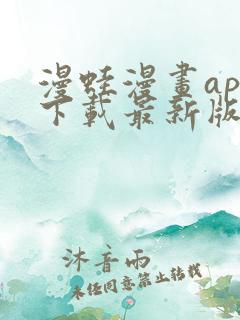 漫蛙漫畫ap
下載最新版
沐音雨
未经同意禁止转载